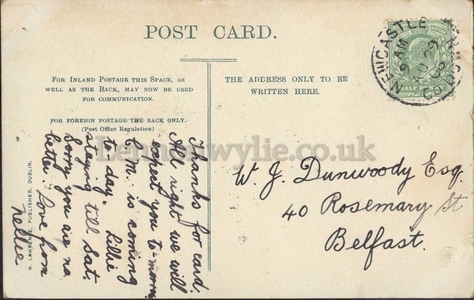 POST CARD.
FOR INLAND POSTAGE THIS SPACE, AS
WELL AS THE BACK, MAY NOW BE USED
FOR COMMUNICATION.
FOR FOREIGN POSTAGE THE BACK ONLY.
(Post Office Regulation)
THE ADDRESS ONLY TO BE
WRITTEN HERE.
NEWCASTLE
CO DOWN
9 AM
29
HALF
W. LAWRENCE, PUBLISHER, DUBLIN.
Thanks for card.
All right we will
expect you to-morrow
C.M. is coming
to day. Lillie
staying till Sat.
Sorry you are no
better. Love from
Nellie
W. J. Dunwoody Esq.
40 Rosemary St
Belfast.
Lennonwylie.co.uk